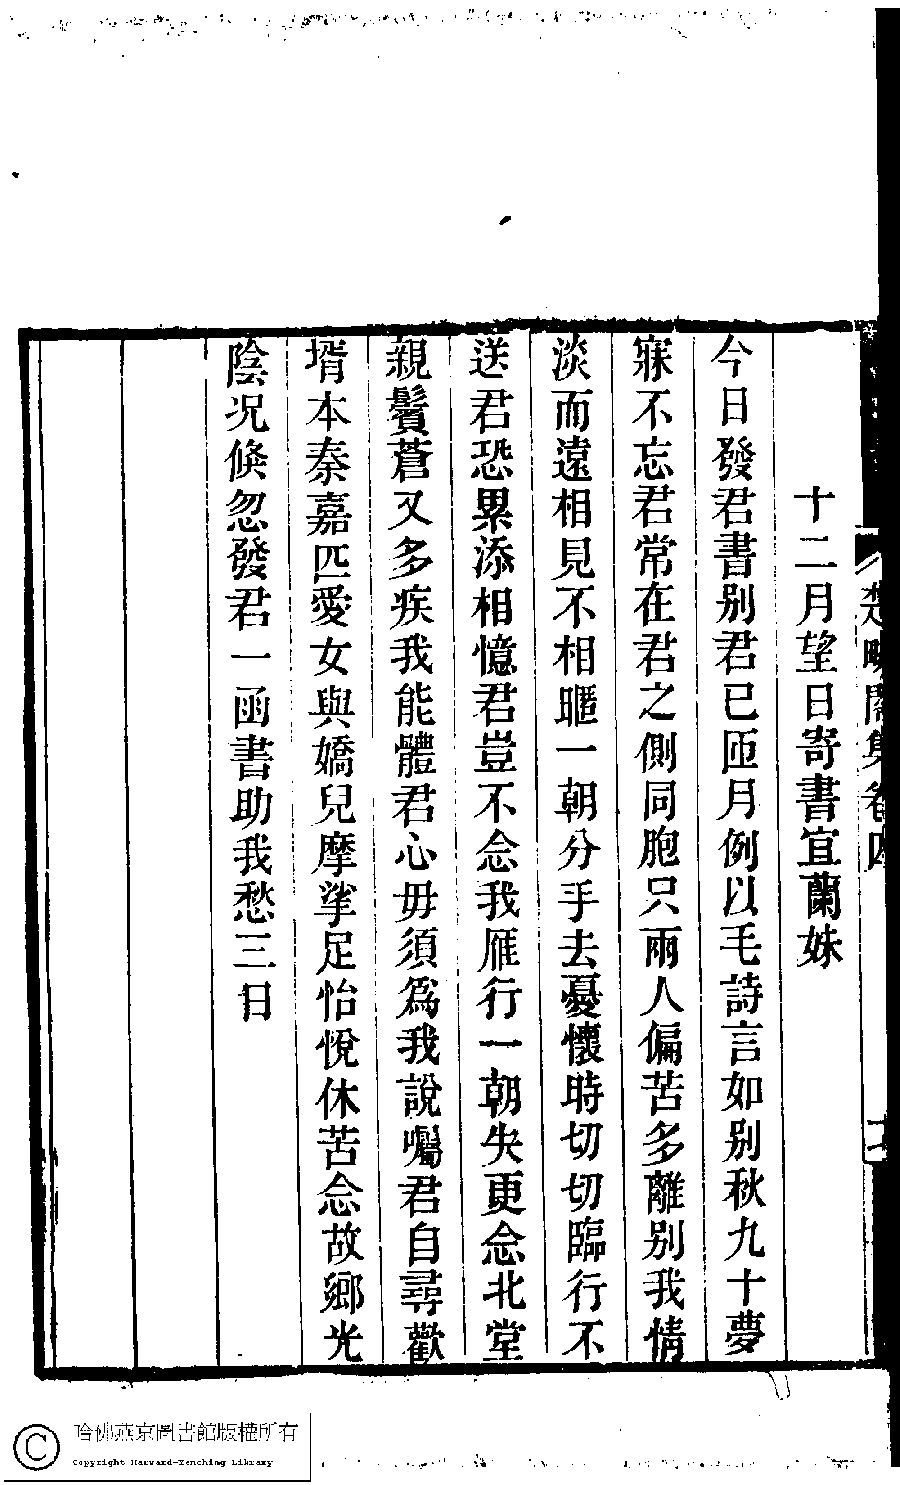 十二月望日寄書宜蘭妹
今日發君書别君已匝月例以毛詩言如别秋九十夢
寐不忘君常在君之側同胞只兩人偏苦多離别我情
淡而遠相見不相暱一朝分手去憂懷時切切臨行不
送君恐累添相憶君豈不念我雁行一朝失更念北堂
親鬢蒼又多疾我能體君心毋須為我說囑君自尋歡
壻本秦嘉匹愛女與嬌兒摩挲足怡悅休苦念故鄉光
陰况倏忽發君一函書助我愁三日
集卷四
哈佛燕京圖書館版權所有
Copyright Harvard-Yenching Library